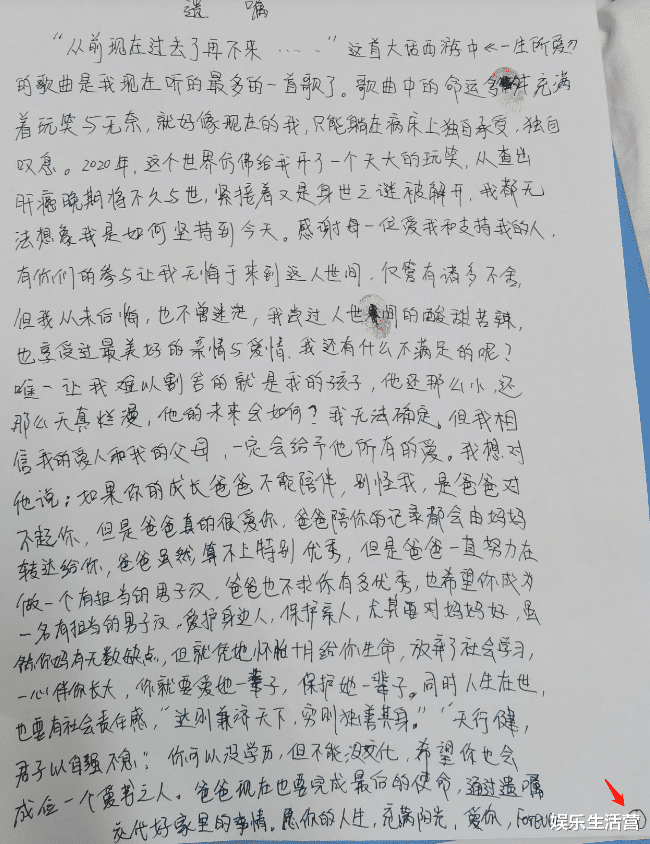 遗嘱
“从前现在过去了再不来……”这首大话西游中《一生所爱》
的歌曲是我现在听的最多的一首歌了。歌曲中的命运 充满
着玩笑与无奈，就好像现在的我，只能躺在病床上独自承受，独自
叹息。2020年，这个世界仿佛给我开了一个天大的玩笑，从查出
肝癌晚期将不久与世，紧接着又是身世之谜被解开，我都无
法想象我是如何坚持到今天。感谢每一位爱我和支持我的人，
有你们的参与让我无悔于来到这人世间，仅管有诸多不舍，
但我从未后悔，也不曾迷茫，我尝过人世间的酸甜苦辣，
也享受过最美好的亲情与爱情，我还有什么不满足的呢？
唯一让我难以割舍的就是我的孩子，他还那么小，还
那么天真烂漫，他的未来会如何？我无法确定。但我相
信我的爱人和我的父母，一定会给予他所有的爱。我想对
他说：如果你的成长爸爸不能陪伴，别怪我，是爸爸对
不起你，但是爸爸真的很爱你，爸爸陪你的记录都会由妈妈
转达给你，爸爸虽然算不上特别优秀，但是爸爸一直努力在
做一个有担当的男子汉，爸爸也不求你有多优秀，也希望你成为
一名有担当的男子汉。爱护身边人，保护亲人，尤其要对妈妈好，虽
然你妈有无数缺点，但就凭她怀胎十月给你生命，放弃了社会学习，
一心伴你长大，你就要爱她一辈子，保护她一辈子。同时人生在世，
也要有社会责任感，“达则兼济天下，穷则独善其身。”“天行健，
君子以自强不息”。你可以没学历，但不能没文化，希望你也会
成为一个爱书之人。爸爸现在也要完成最后的使命，通过遗嘱
交代好家里的事情。愿你的人生，充满阳光，爱你，
娱乐生活营
①